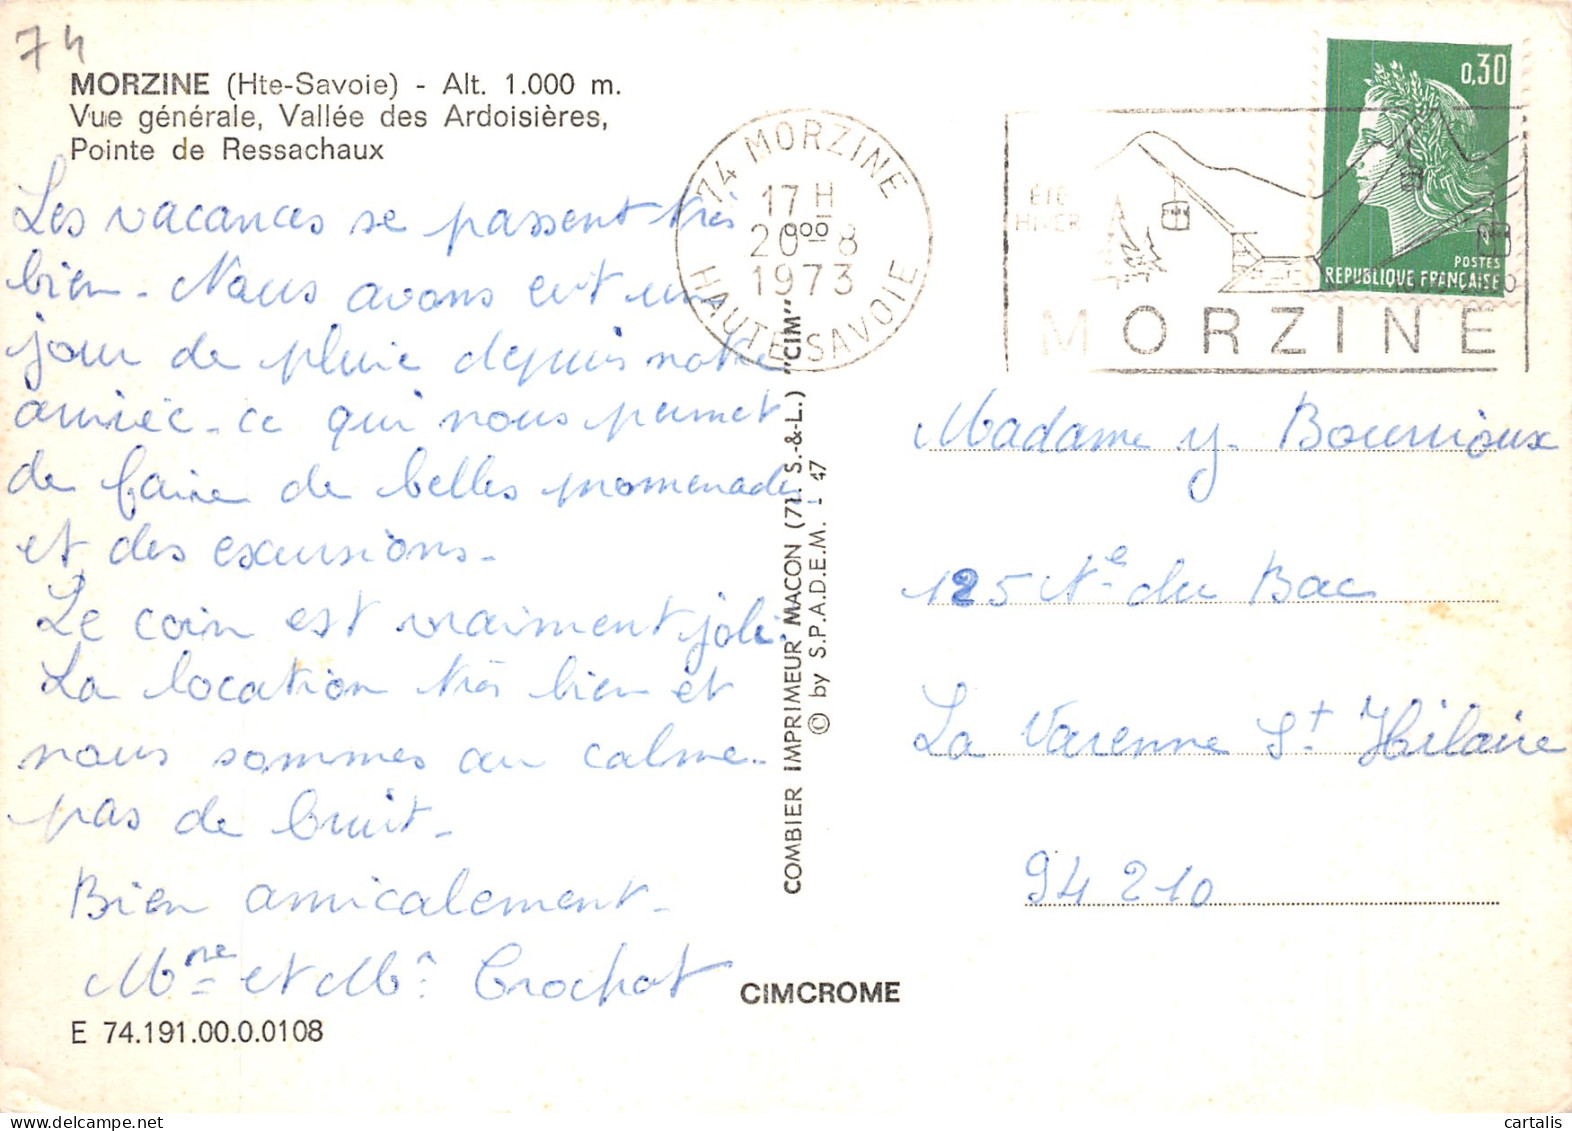 74
MORZINE (Hte-Savoie) - Alt. 1.000 m.
Vue générale, Vallée des Ardoisières,
Pointe de Ressachaux
Les vacances se passent très
bien - Nous avons eut un
jour de pluie depuis notre
arrivée - ce qui nous permet
de faire de belles promenades
et des excursions -
Le coin est vraiment joli.
La location très bien et
nous sommes au calme -
pas de bruit -
Bien amicalement -
Mme et Mr Crochot
E 74.191.00.0.0108
CIMCROME
COMBIER IMPRIMEUR MACON (71. S.-&-L.) "CIM"
© by S.P.A.D.E.M. - 47
74 MORZINE
17 H
20-8
1973
HAUTE SAVOIE
ÉTÉ
HIVER
MORZINE
0,30
POSTES
REPUBLIQUE FRANÇAISE
Madame y. Bournioux
125 Ne du Bac
La Varenne St Hilaire
94 210
cartalis
www.delcampe.net